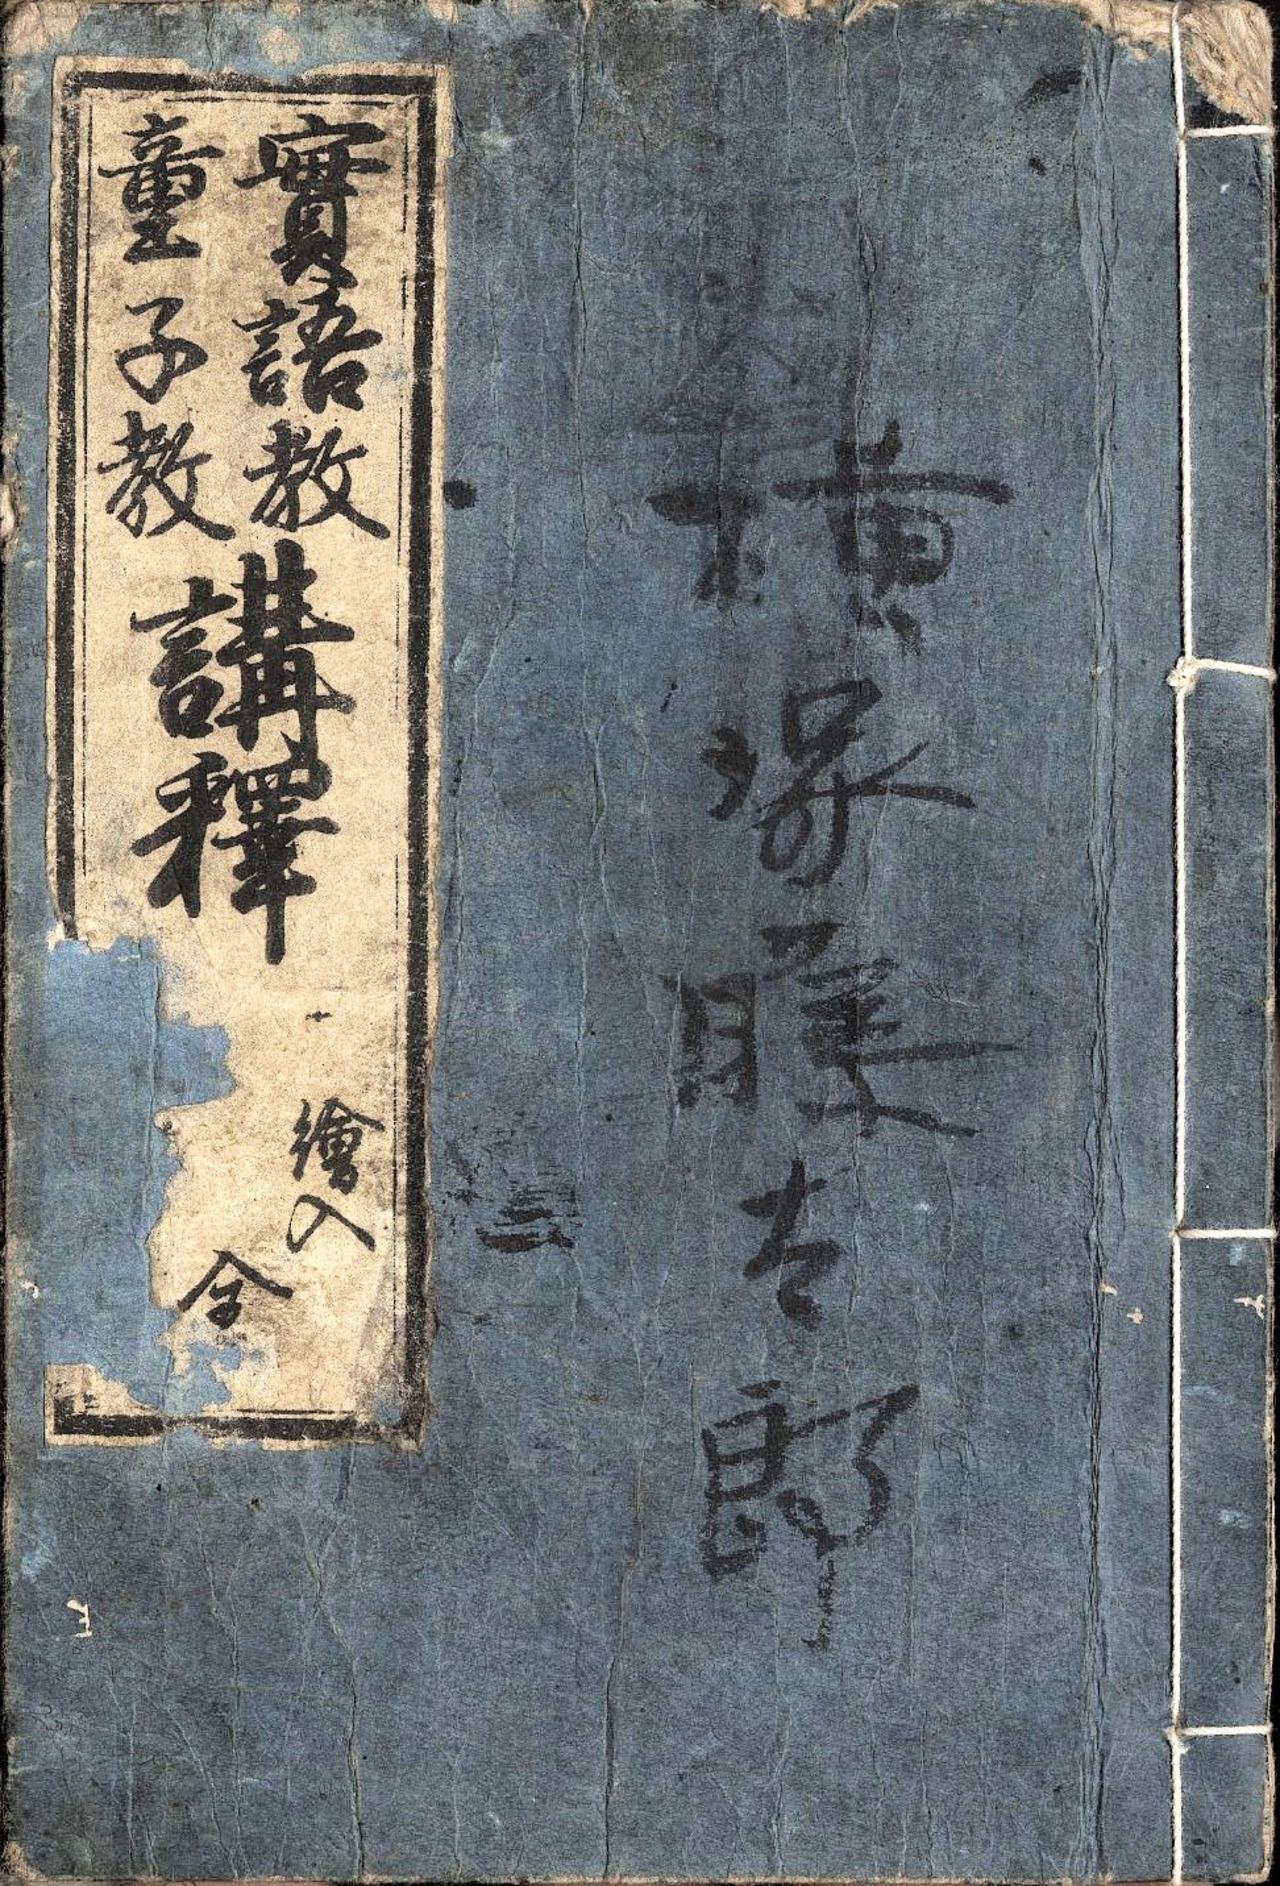 實語教
童子教
講釋
繪入
全
横塚
太郎